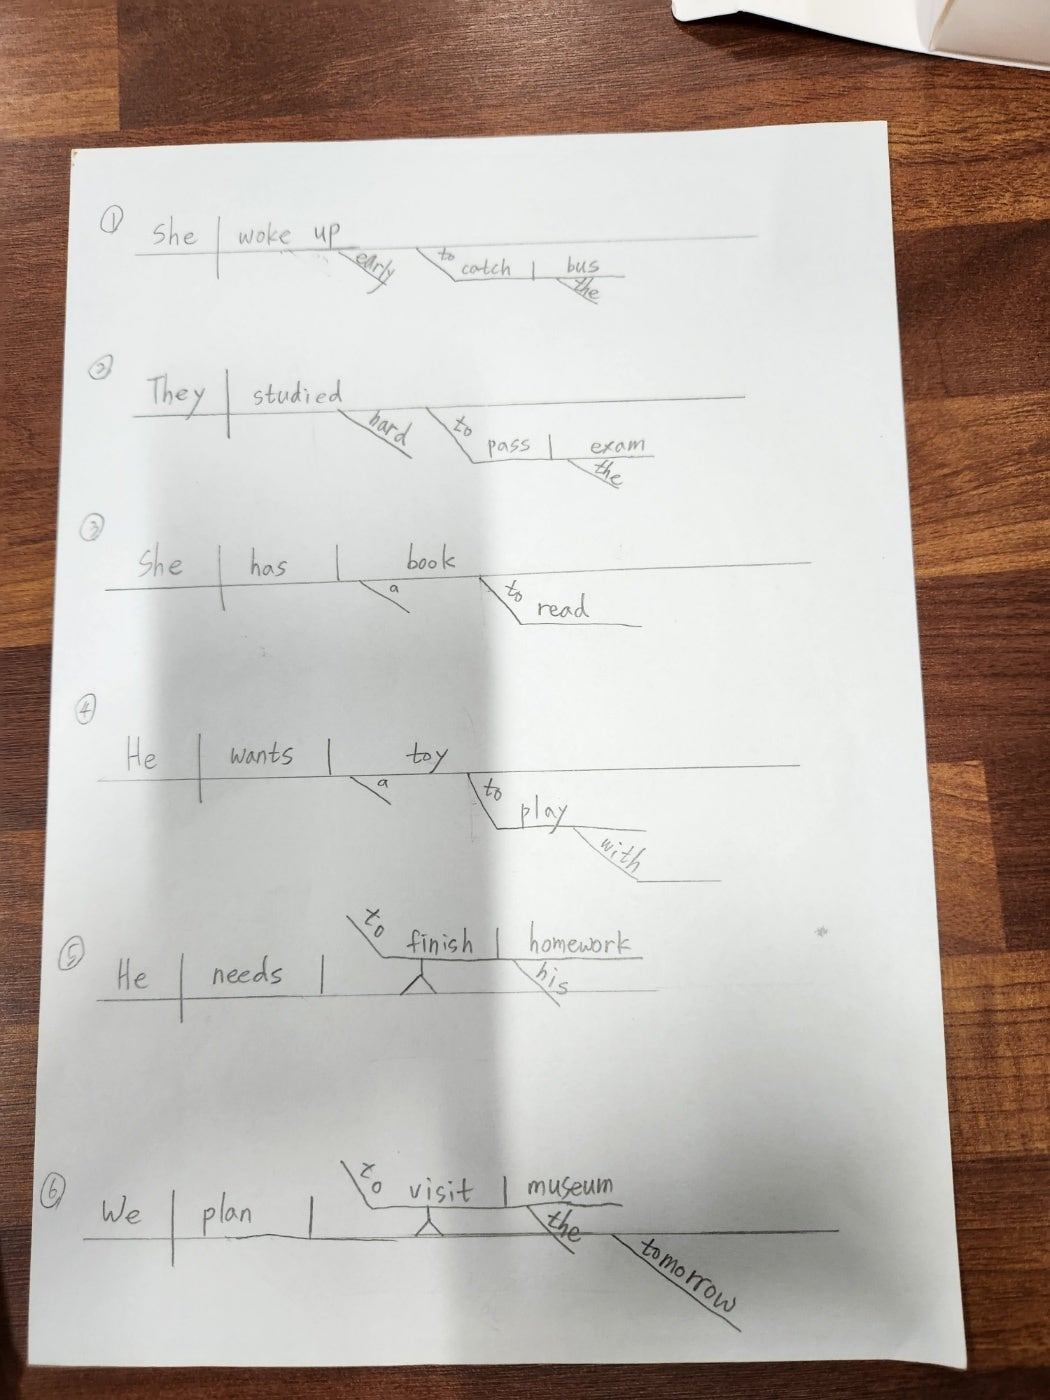 ① She woke up early to catch bus the
② They studied hard to pass exam the
③ She has a book to read
④ He wants a toy to play with
⑤ He needs to finish his homework
⑥ We plan to visit the museum tomorrow